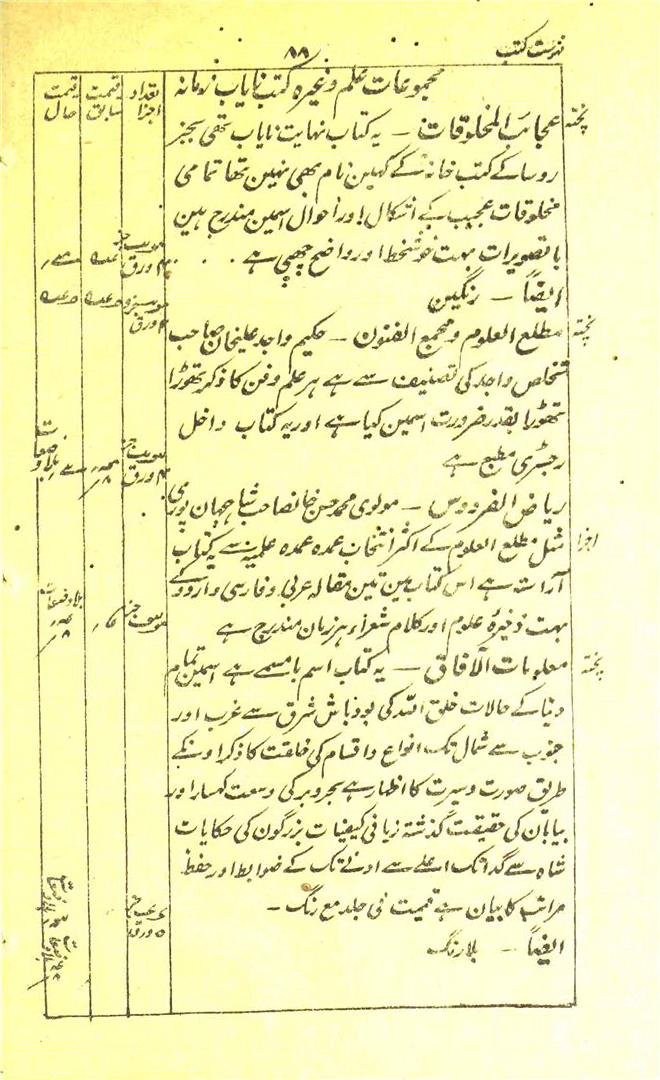 فہرست کتب
۸۸
مجموعات علم وغیرہ کتب نایاب زمانہ
تعداد اجزا
قیمت سابق
قیمت حال
پختہ
عجائب المخلوقات — یہ کتاب نہایت نایاب تھی بجز
روسا کے کتب خانہ کے کہین نام بھی نہین تھا تمامی
مخلوقات عجیب کے اشکال اور احوال اسمین مندرج ہین
با تصویرات بہت خوشخط اور واضح چھپی ہے
ایضاً — رنگین
پختہ
مطلع العلوم و مجمع الفنون — حکیم واجد علیخان صاحب
تخلص واجد کی تصنیف سے ہے ہر علم وفن کا ذکر تھوڑا
تھوڑا بقدر ضرورت اسمین کیا ہے اور یہ کتاب داخل
رجسٹری مطبع ہے
ریاض الفردوس — مولوی محمد حسن خانصاحب شاہجہان پوری
اجزا
مثل مطلع العلوم کے اکثر انتخاب عمدہ عمدہ علمیہ سے یہ کتاب
آراستہ ہے اس کتاب مین تین مقالہ عربی وفارسی واردو کے
بہت ذخیرۂ علوم اور کلام شعراء ہر زبان مندرج ہے
پختہ
معلومات الآفاق — یہ کتاب اسم بامسمے ہے اسمین تمام
دنیا کے حالات خلق اللہ کی بودباش شرق سے غرب اور
جنوب سے شمال تک انواع واقسام کی خلقت کا ذکر اونکے
طریق صورت وسیرت کا اظہار ہے بحروبر کی وسعت کہسار اور
بیابان کی حقیقت گذشتہ زمانی کیفیات بزرگون کی حکایات
شاہ سے گدا تک اعلے سے ادنے تک کے ضوابط اور حفظ
مراتب کا بیان ہے قیمت فی جلد مع رنگ —
ایضاً — بلا رنگ